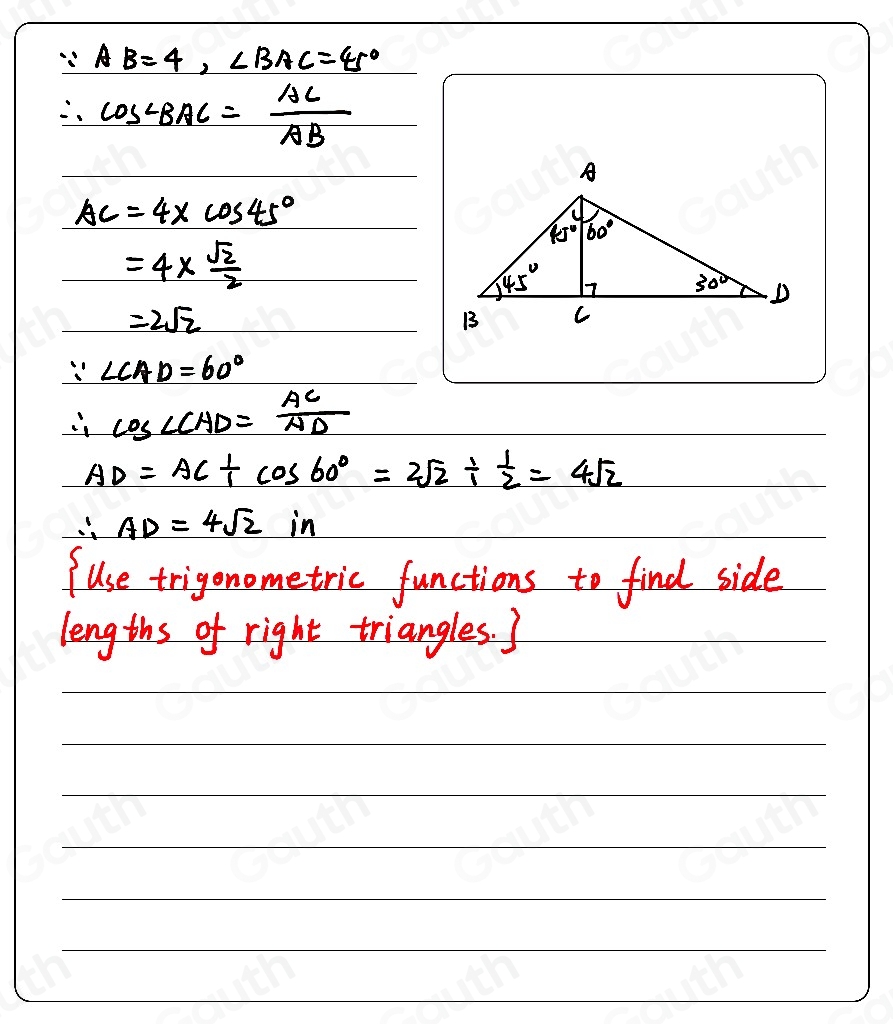 ∵ AB=4, ∠BAC=45°
∴ cos∠BAC = AC/AB
AC=4× cos45°
=4× √2/2
=2√2
∵ ∠CAD=60°
∴ cos∠CAD= AC/AD
AD = AC ÷ cos60° = 2√2 ÷ 1/2 = 4√2
∴ AD = 4√2 in
{Use trigonometric functions to find side
lengths of right triangles.}
A
45° 60°
45° 30°
B C D
Gauth